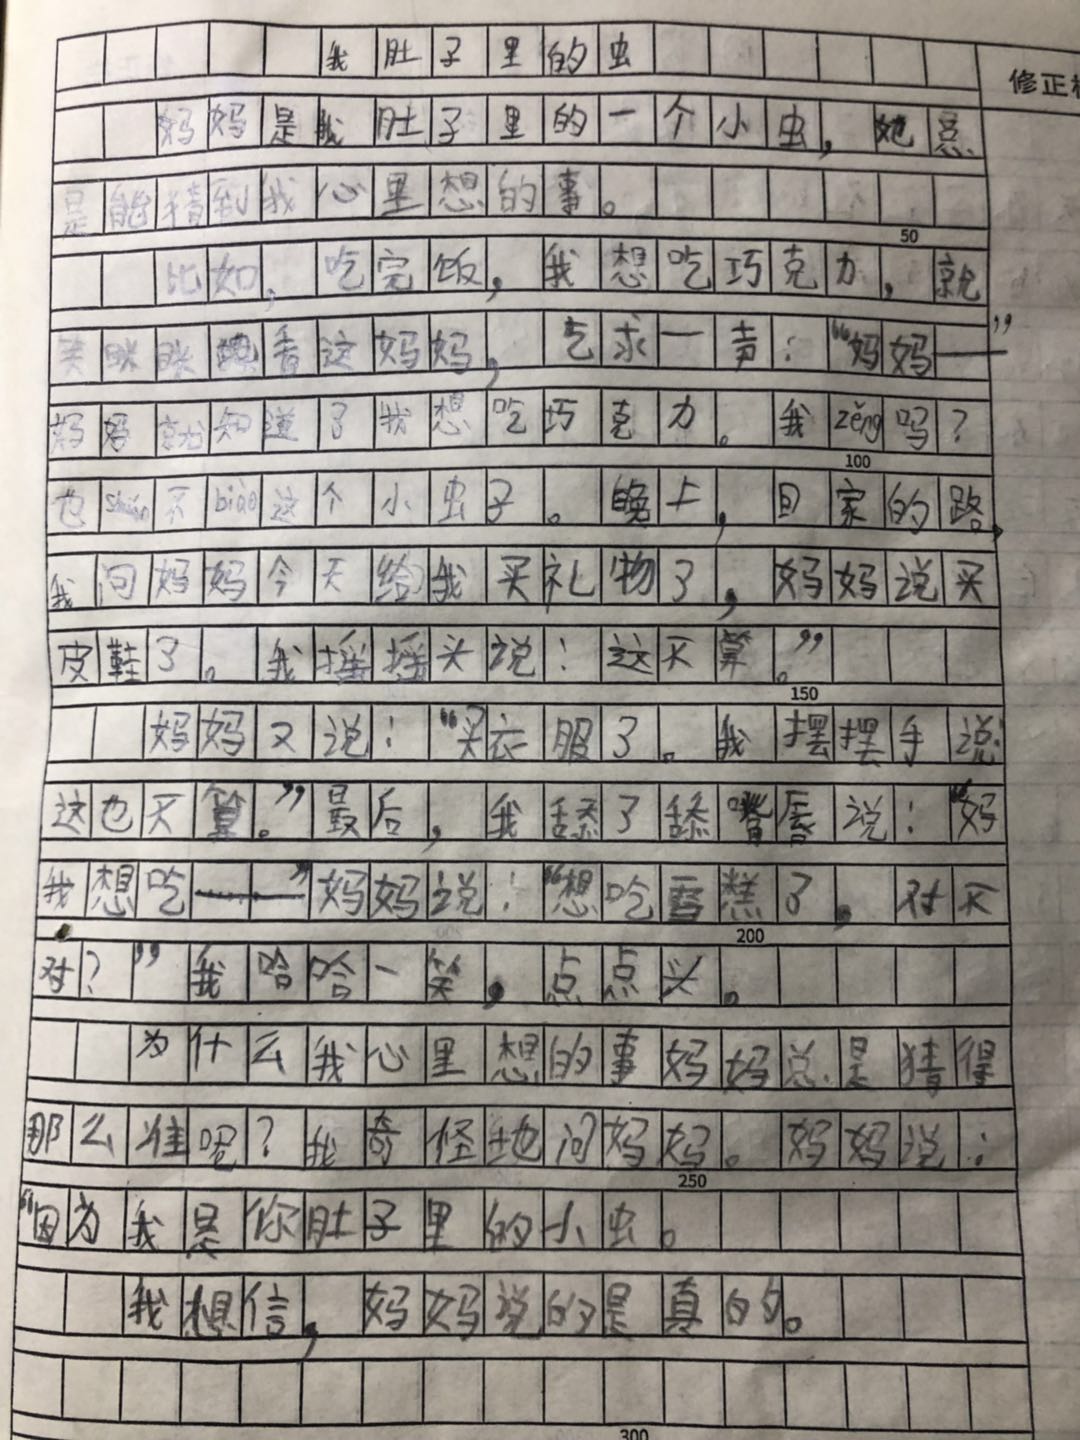 我肚子里的虫
修正
妈妈是我肚子里的一个小虫，她总
是能猜到我心里想的事。
50
比如，吃完饭，我想吃巧克力，就
笑眯眯地看这妈妈，乞求一声：“妈妈——”
妈妈就知道了我想吃巧克力。我zěng吗？
100
也shuǎn不biào这个小虫子。晚上，回家的路，
我问妈妈今天给我买礼物了，妈妈说买
皮鞋了。我摇摇头说：这不算。”
150
妈妈又说：“买衣服了。我摆摆手说：
这也不算。”最后，我舔了舔嘴唇说：“妈
我想吃——”妈妈说：“想吃雪糕了，对不
200
对？”我哈哈一笑，点点头。
为什么我心里想的事妈妈总是猜得
那么准呢？我奇怪地问妈妈。妈妈说：
250
“因为我是你肚子里的小虫。
我想信，妈妈说的是真的。
300